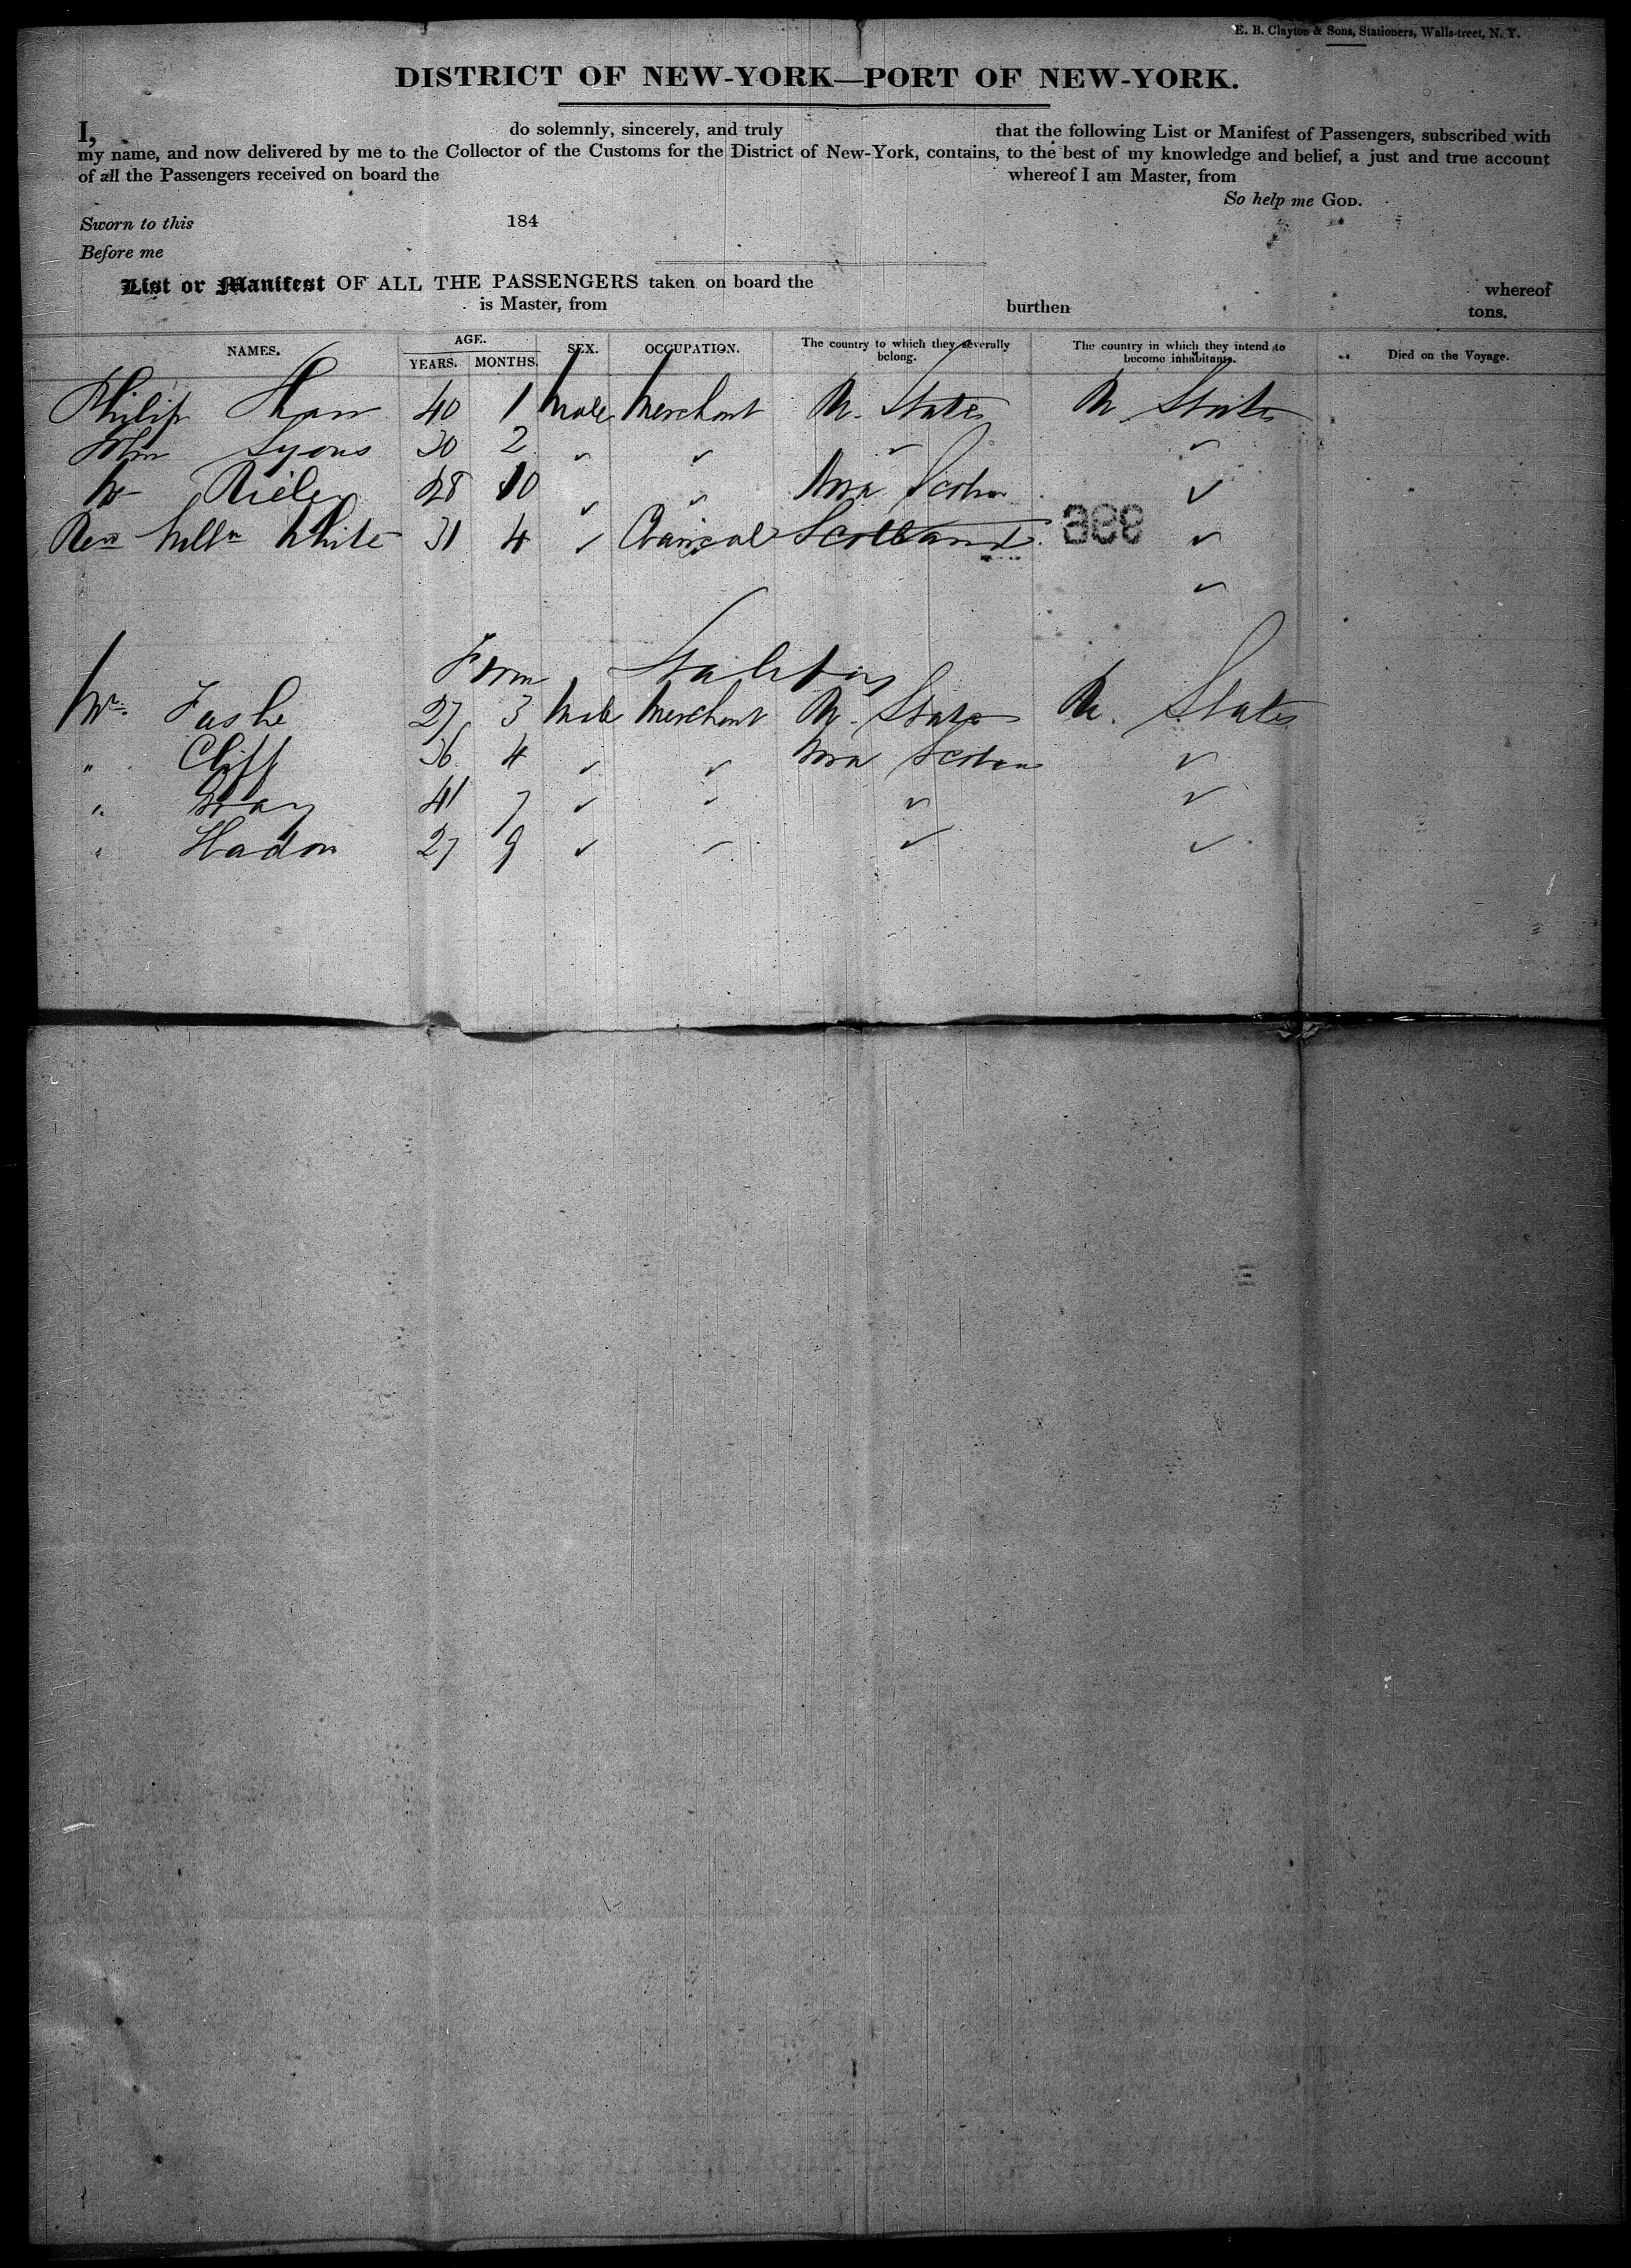 E. B. Clayton & Sons, Stationers, Walls-treet, N. Y.
DISTRICT OF NEW-YORK—PORT OF NEW-YORK.
I, do solemnly, sincerely, and truly that the following List or Manifest of Passengers, subscribed with
my name, and now delivered by me to the Collector of the Customs for the District of New-York, contains, to the best of my knowledge and belief, a just and true account
of all the Passengers received on board the whereof I am Master, from
So help me GOD.
Sworn to this 184
Before me
List or Manifest OF ALL THE PASSENGERS taken on board the whereof
is Master, from burthen tons.
NAMES. AGE. YEARS. MONTHS. SEX. OCCUPATION. The country to which they severally belong. The country in which they intend to become inhabitants. Died on the Voyage.
Philip 40 1 Male Merchant U. States U States
Lyons 30 2 ✓ ✓ ✓ ✓
28 10 ✓ ✓ Nova Scotia ✓
Revd Willm White 31 4 ✓ Scotland ✓
✓
From Halifax
Mr. 27 3 Male Merchant U. States U. States
" Cliff 36 4 ✓ ✓ Nova Scotia ✓
" 41 7 ✓ ✓ ✓ ✓
" Hadon 27 9 ✓ ✓ ✓ ✓